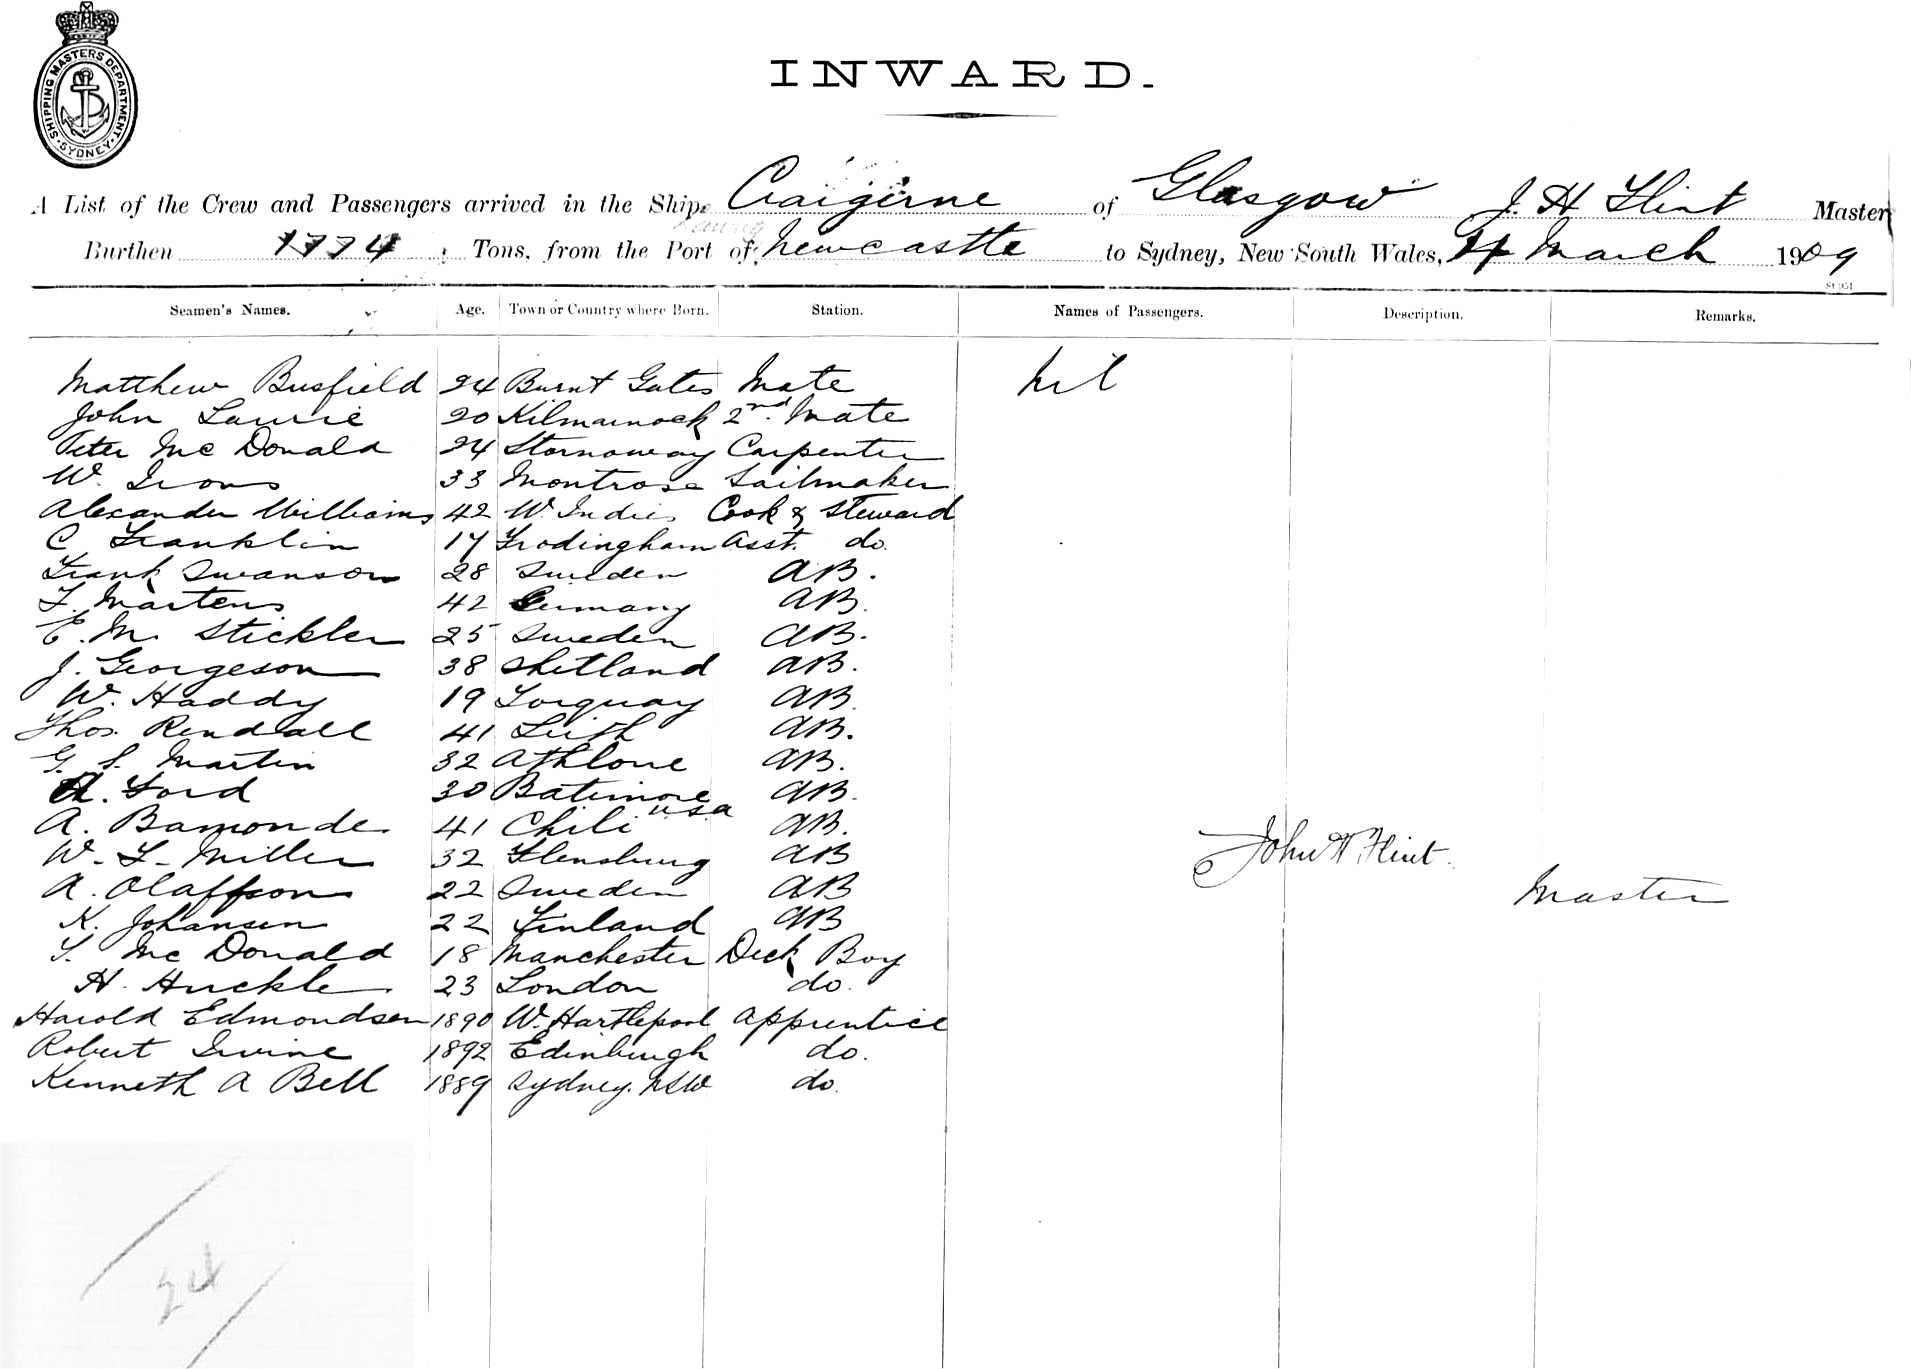 SHIPPING MASTERS DEPARTMENT
SYDNEY
INWARD.
A List of the Crew and Passengers arrived in the Ship Craigerne of Glasgow J. H Flint Master
Burthen 1774 Tons, from the Port of Newcastle to Sydney, New South Wales, 4 March 1909
Seamen's Names. Age. Town or Country where Born. Station. Names of Passengers. Description. Remarks.
Matthew Busfield 24 Burnt Gates Mate nil
John Laurie 20 Kilmarnock 2nd. Mate
Peter McDonald 24 Stornoway Carpenter
W. Irons 33 Montrose Sailmaker
Alexander Williams 42 W. Indies Cook & Steward
C Franklin 17 Frodingham Asst. do.
Frank Swanson 28 Sweden AB.
F. Martens 42 Germany AB.
E. M. Stickler 25 Sweden AB.
J. Georgeson 38 Shetland AB.
W. Haddy 19 Torquay AB.
Thos. Rendall 41 Leith AB.
G. S. Martin 32 Athlone AB.
A. Ford 30 Batimore USA AB.
A. Bamonde 41 Chili AB.
W. F. Miller 32 Flensburg AB
John H Flint.
A. Olaffson 22 Sweden AB
Master
K. Johansen 22 Finland AB
McDonald 18 Manchester Deck Boy
H. Huckle 23 London do.
Harold Edmondson 1890 W. Hartlepool Apprentice
Robert Irvine 1892 Edinburgh do.
Kenneth A Bell 1889 Sydney. NSW do.
24